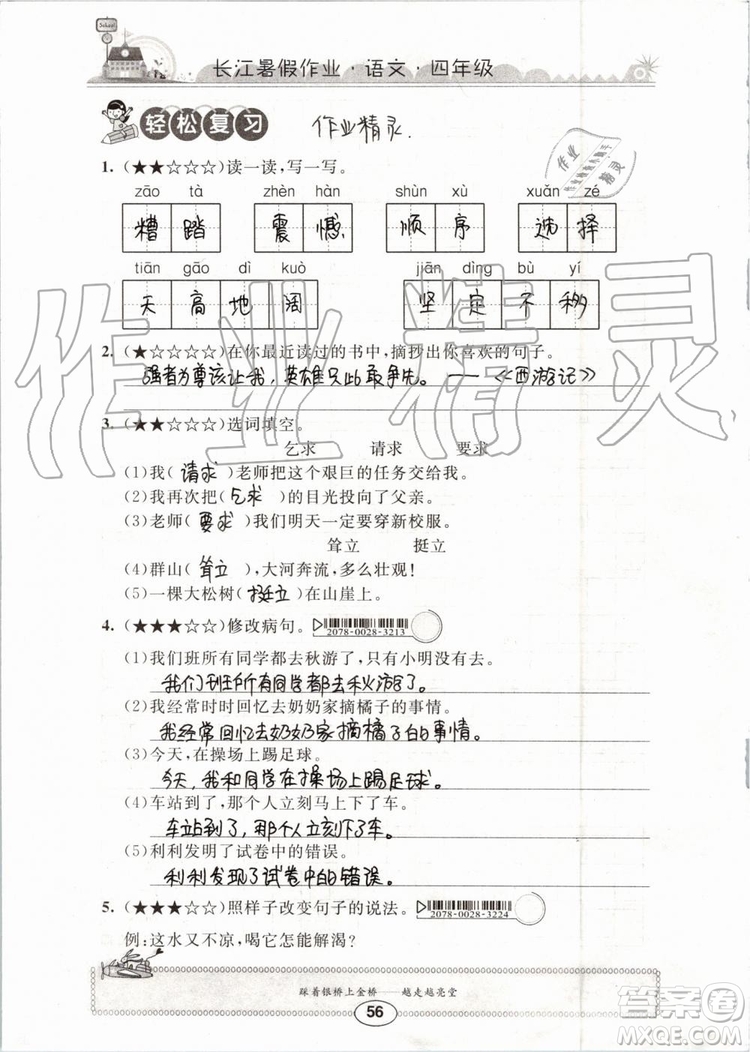 School
长江暑假作业·语文·四年级
轻松复习 作业精灵.
作业
精灵
1. (★★☆☆☆)读一读,写一写。
zāo tà zhèn hàn shùn xù xuǎn zé
糟踏 震憾 顺序 选择
tiān gāo dì kuò jiān dìng bù yí
天高地阔 坚定不移
作业精灵
2. (★☆☆☆☆)在你最近读过的书中,摘抄出你喜欢的句子。
强者为尊该让我,英雄只此敢争先。——《西游记》
3. (★★☆☆☆)选词填空。
乞求 请求 要求
(1)我( 请求 )老师把这个艰巨的任务交给我。
(2)我再次把( 乞求 )的目光投向了父亲。
(3)老师( 要求 )我们明天一定要穿新校服。
耸立 挺立
(4)群山( 耸立 ),大河奔流,多么壮观!
(5)一棵大松树( 挺立 )在山崖上。
4. (★★★☆☆)修改病句。 2078-0028-3213
(1)我们班所有同学都去秋游了,只有小明没有去。
我们班所有同学都去秋游了。
(2)我经常时时回忆去奶奶家摘橘子的事情。
我经常回忆去奶奶家摘橘子的事情。
(3)今天,在操场上踢足球。
今天,我和同学在操场上踢足球。
(4)车站到了,那个人立刻马上下了车。
车站到了,那个人立刻下了车。
(5)利利发明了试卷中的错误。
利利发现了试卷中的错误。
5. (★★★☆☆)照样子改变句子的说法。 2078-0028-3224
例:这水又不凉,喝它怎能解渴?
踩着银桥上金桥——越走越亮堂
56
答案圈
MXQE.COM